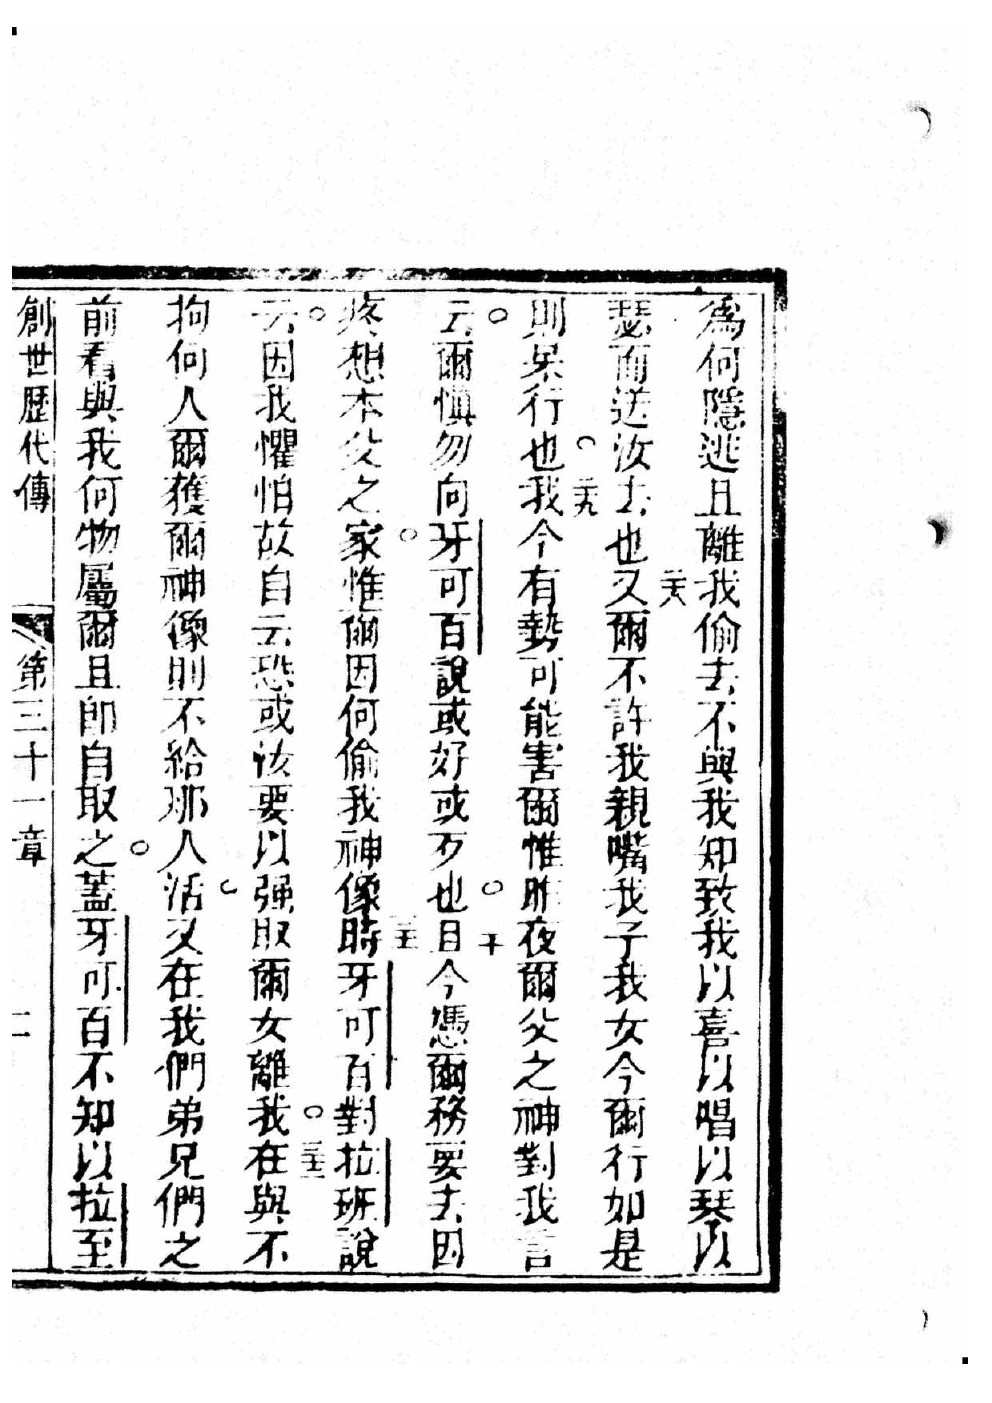 為何隱逃且離我偷去不與我知致我以喜以唱以琴以
瑟而送汝去也二八又爾不許我親嘴我子我女今爾行如是
則呆行也二九我今有勢可能害爾惟昨夜爾父之神對我言
云爾慎勿向牙可百說或好或歹也三十且今憑爾務要去因
疼想本父之家惟爾因何偷我神像三一時牙可百對拉班說
云因我懼怕故自云恐或汝要以强取爾女離我三二在與不
拘何人爾獲爾神像則不給那人活又在我們弟兄們之
前看與我何物屬爾且即自取之蓋牙可百不知以拉至
創世歷代傳 第三十一章 二